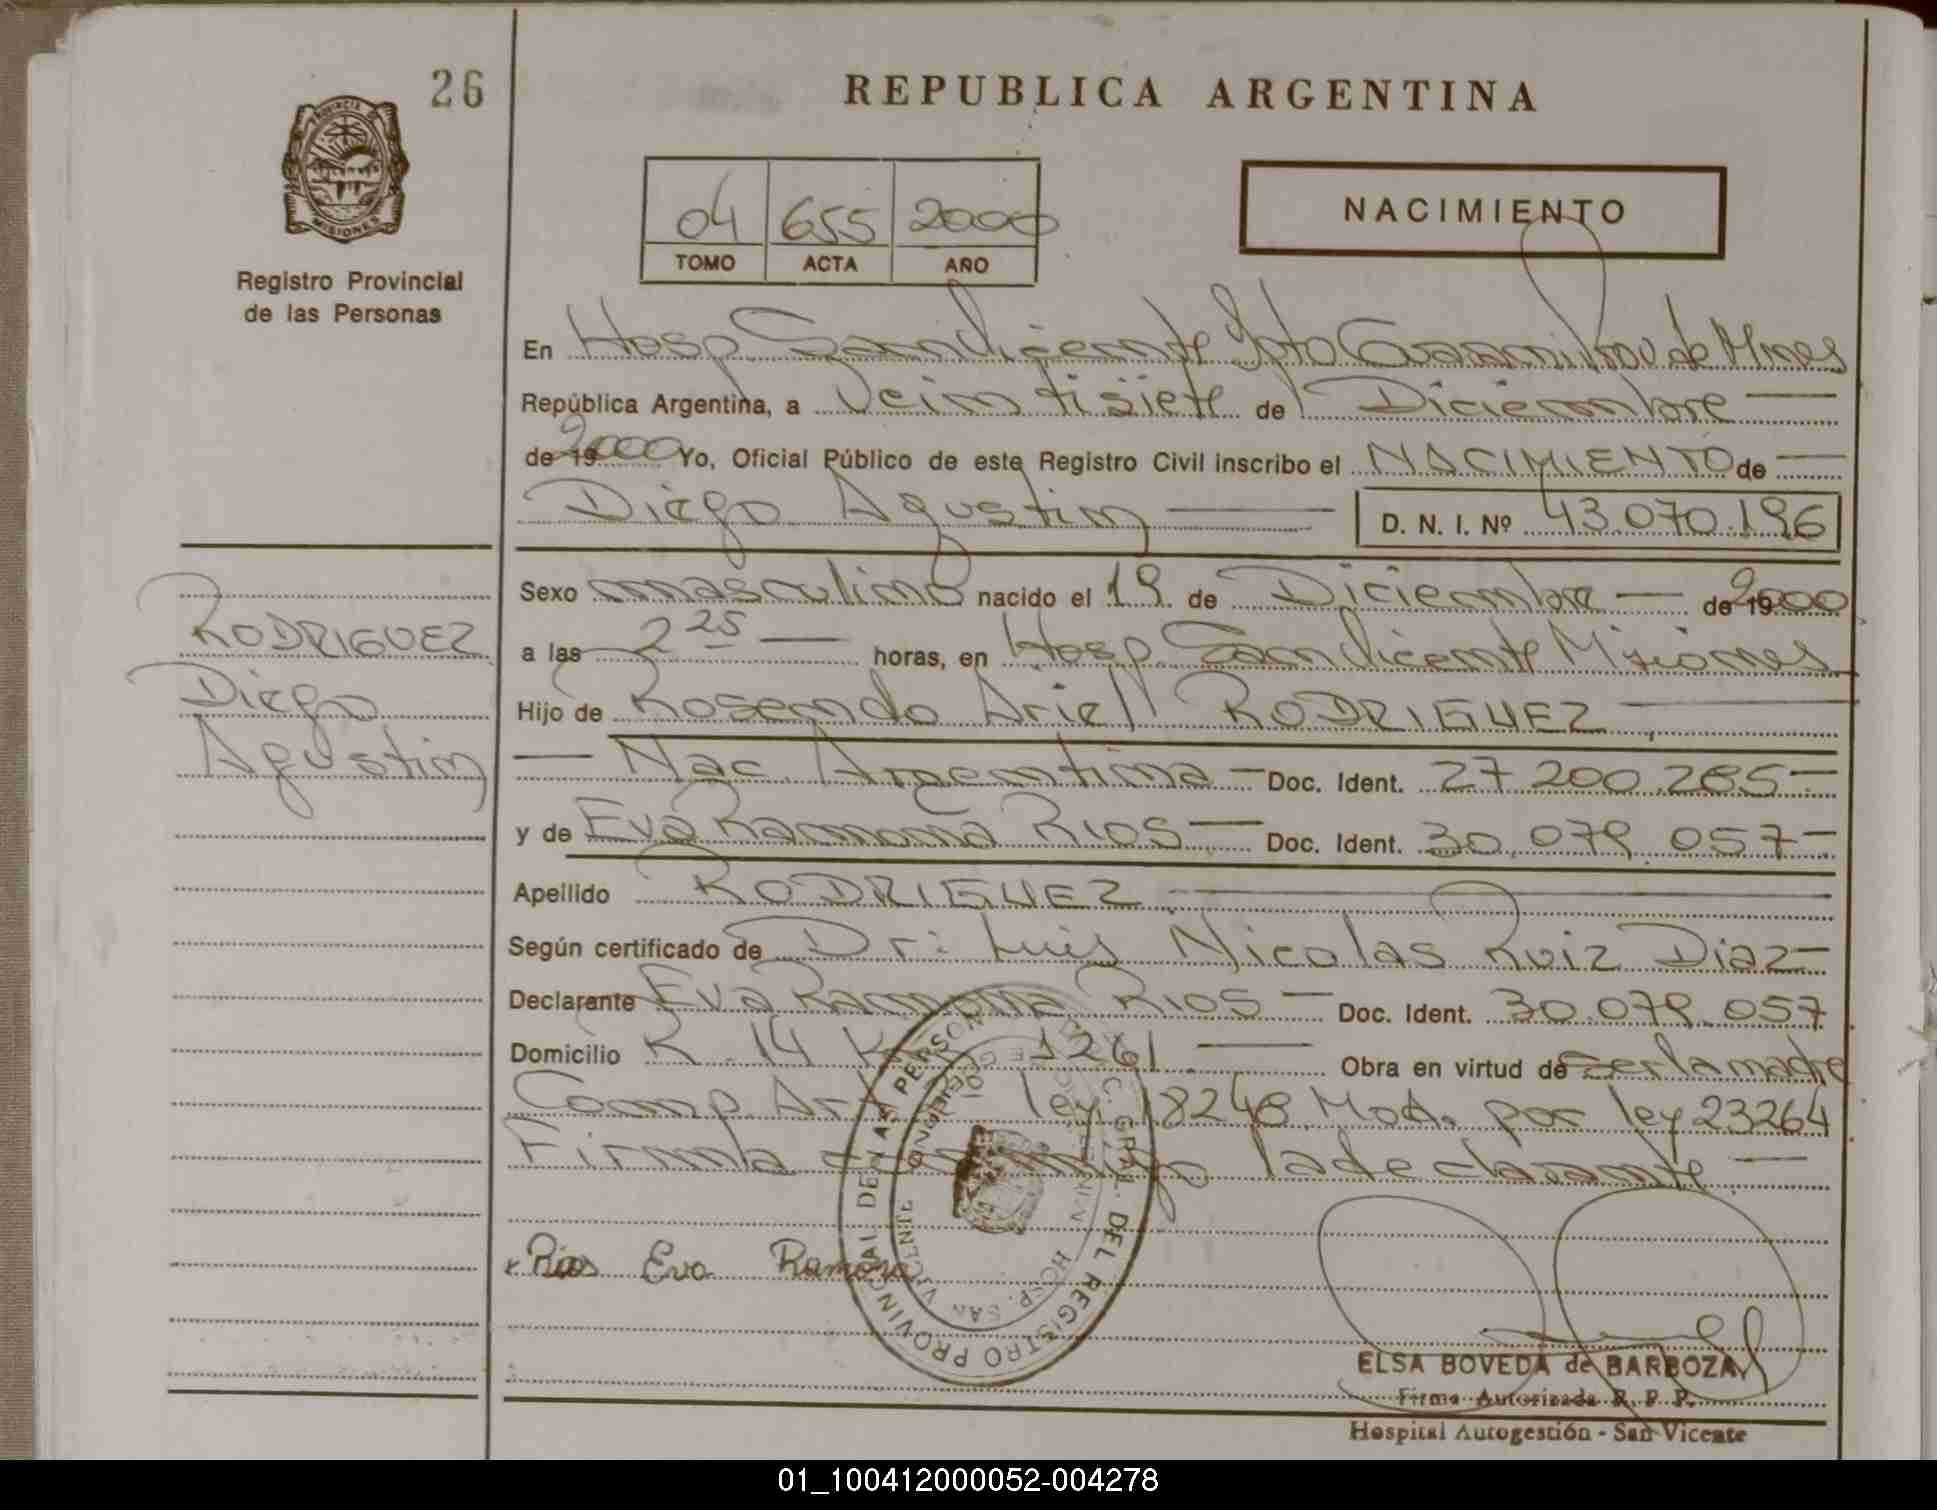 26
REPUBLICA ARGENTINA
PROVINCIA DE
MISIONES
Registro Provincial
de las Personas
04 655 2000
TOMO ACTA AÑO
NACIMIENTO
En Hosp San Vicente Dpto Guarani Prov de Mnes
República Argentina, a Veintisiete de Diciembre
de 19 2000 Yo, Oficial Público de este Registro Civil inscribo el NACIMIENTO de
Diego Agustin D. N. I. Nº 43.070.196
RODRIGUEZ
Diego
Agustin
Sexo masculino nacido el 19 de Diciembre de 19 2000
a las 2 25 horas, en Hosp San Vicente Misiones
Hijo de Rosendo Ariel RODRIGUEZ
Nac. Argentina Doc. Ident. 27.200.285
y de Eva Ramona RIOS Doc. Ident. 30.079.057
Apellido RODRIGUEZ
Según certificado de Dr: Luis Nicolas Ruiz Diaz
Declarante Eva Ramona RIOS Doc. Ident. 30.079.057
Domicilio R. 14 K 1261 Obra en virtud de ser la madre
Comp. Art ley 18248 Mod. por ley 23264
Firma conmigo la declarante
Rios Eva Ramona
REGISTRO PROVINCIAL DE LAS PERSONAS
GRAL. DEL
HOSP. SAN VICENTE
ELSA BOVEDA de BARBOZA
Firma Autorizada R. P. P.
Hospital Autogestión - San Vicente
01_100412000052-004278